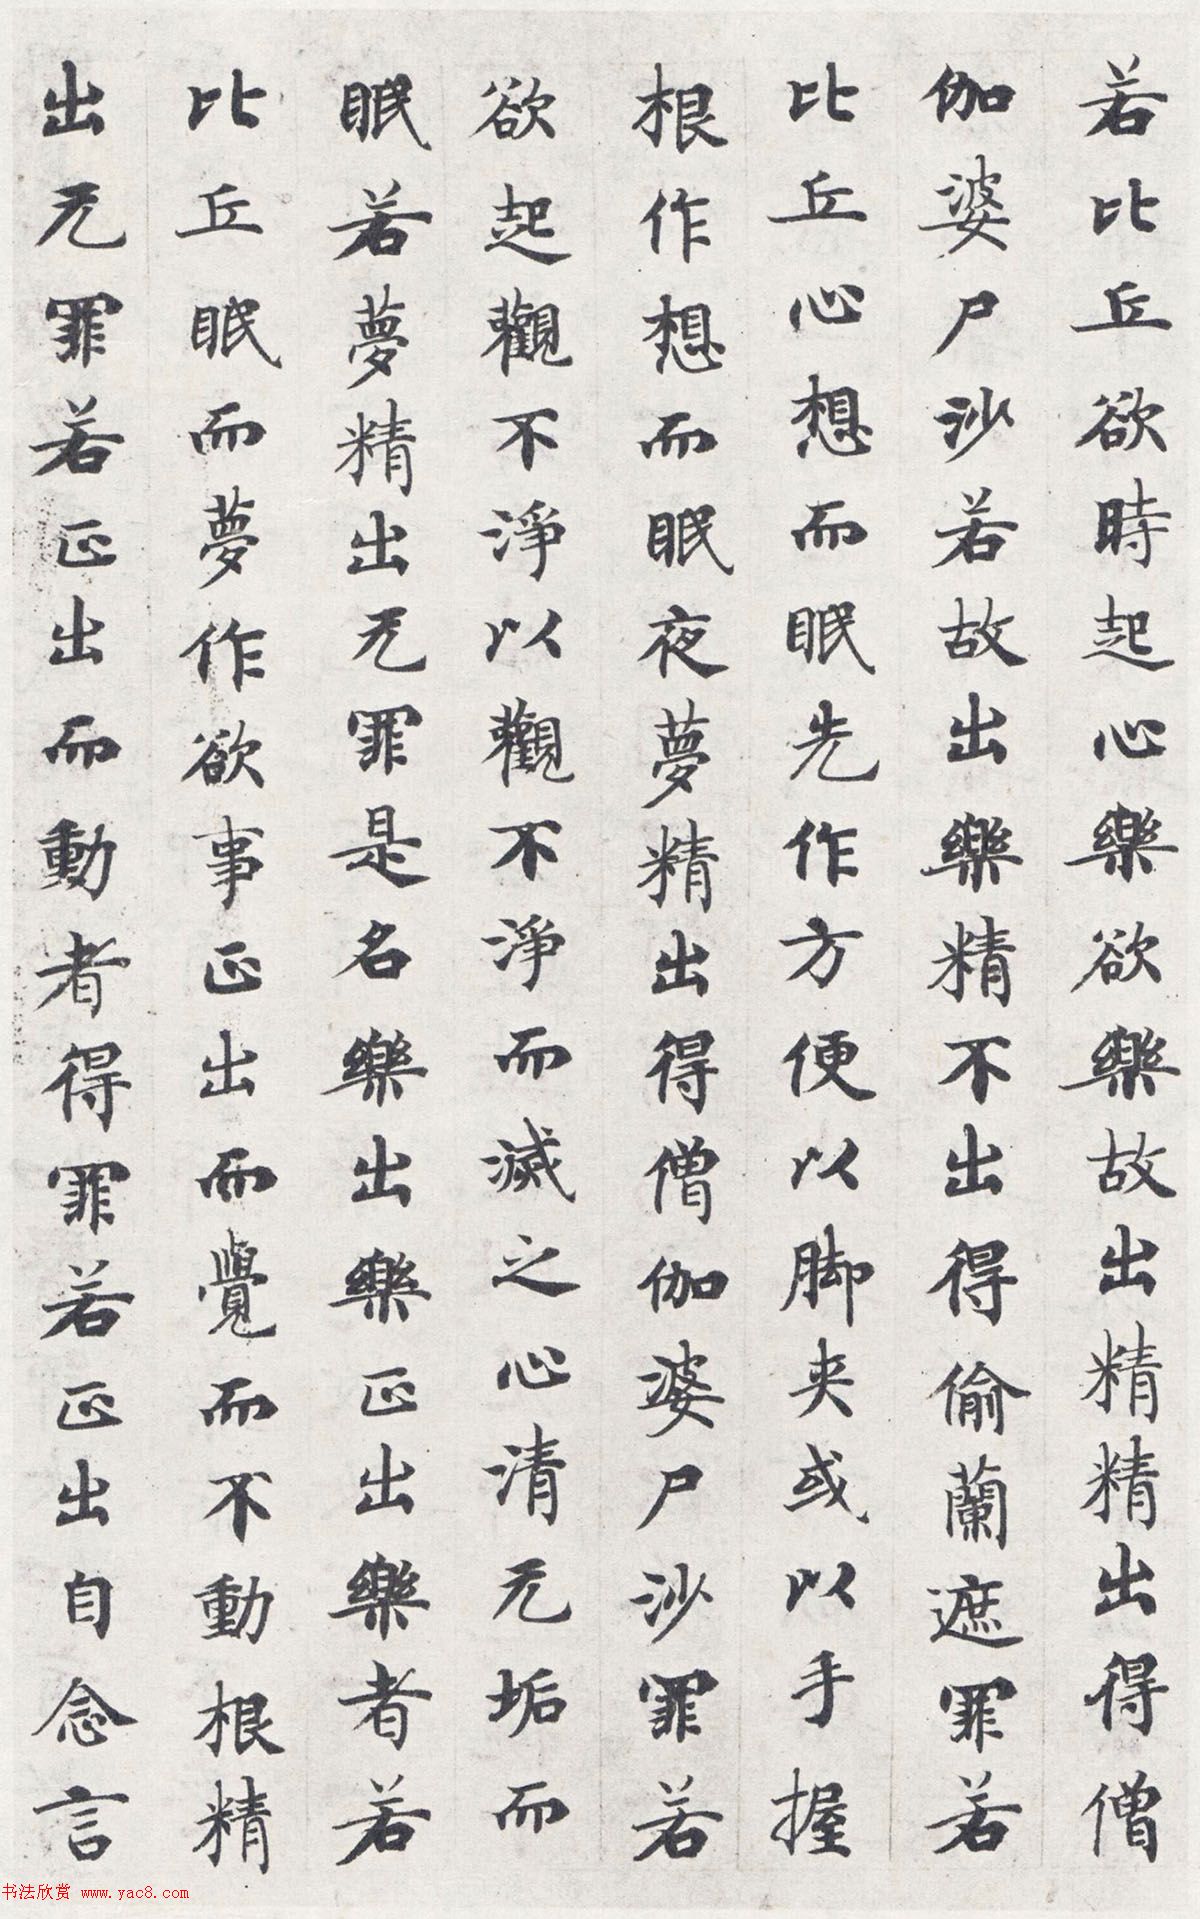 若比丘欲時起心樂欲樂故出精精出得僧
伽婆尸沙若故出樂精不出得偷蘭遮罪若
比丘心想而眠先作方便以脚夾或以手握
根作想而眠夜夢精出得僧伽婆尸沙罪若
欲起觀不淨以觀不淨而滅之心清无垢而
眠若夢精出无罪是名樂出樂正出樂者若
比丘眠而夢作欲事正出而覺而不動根精
出无罪若正出而動者得罪若正出自念言
书法欣赏 www.yac8.com